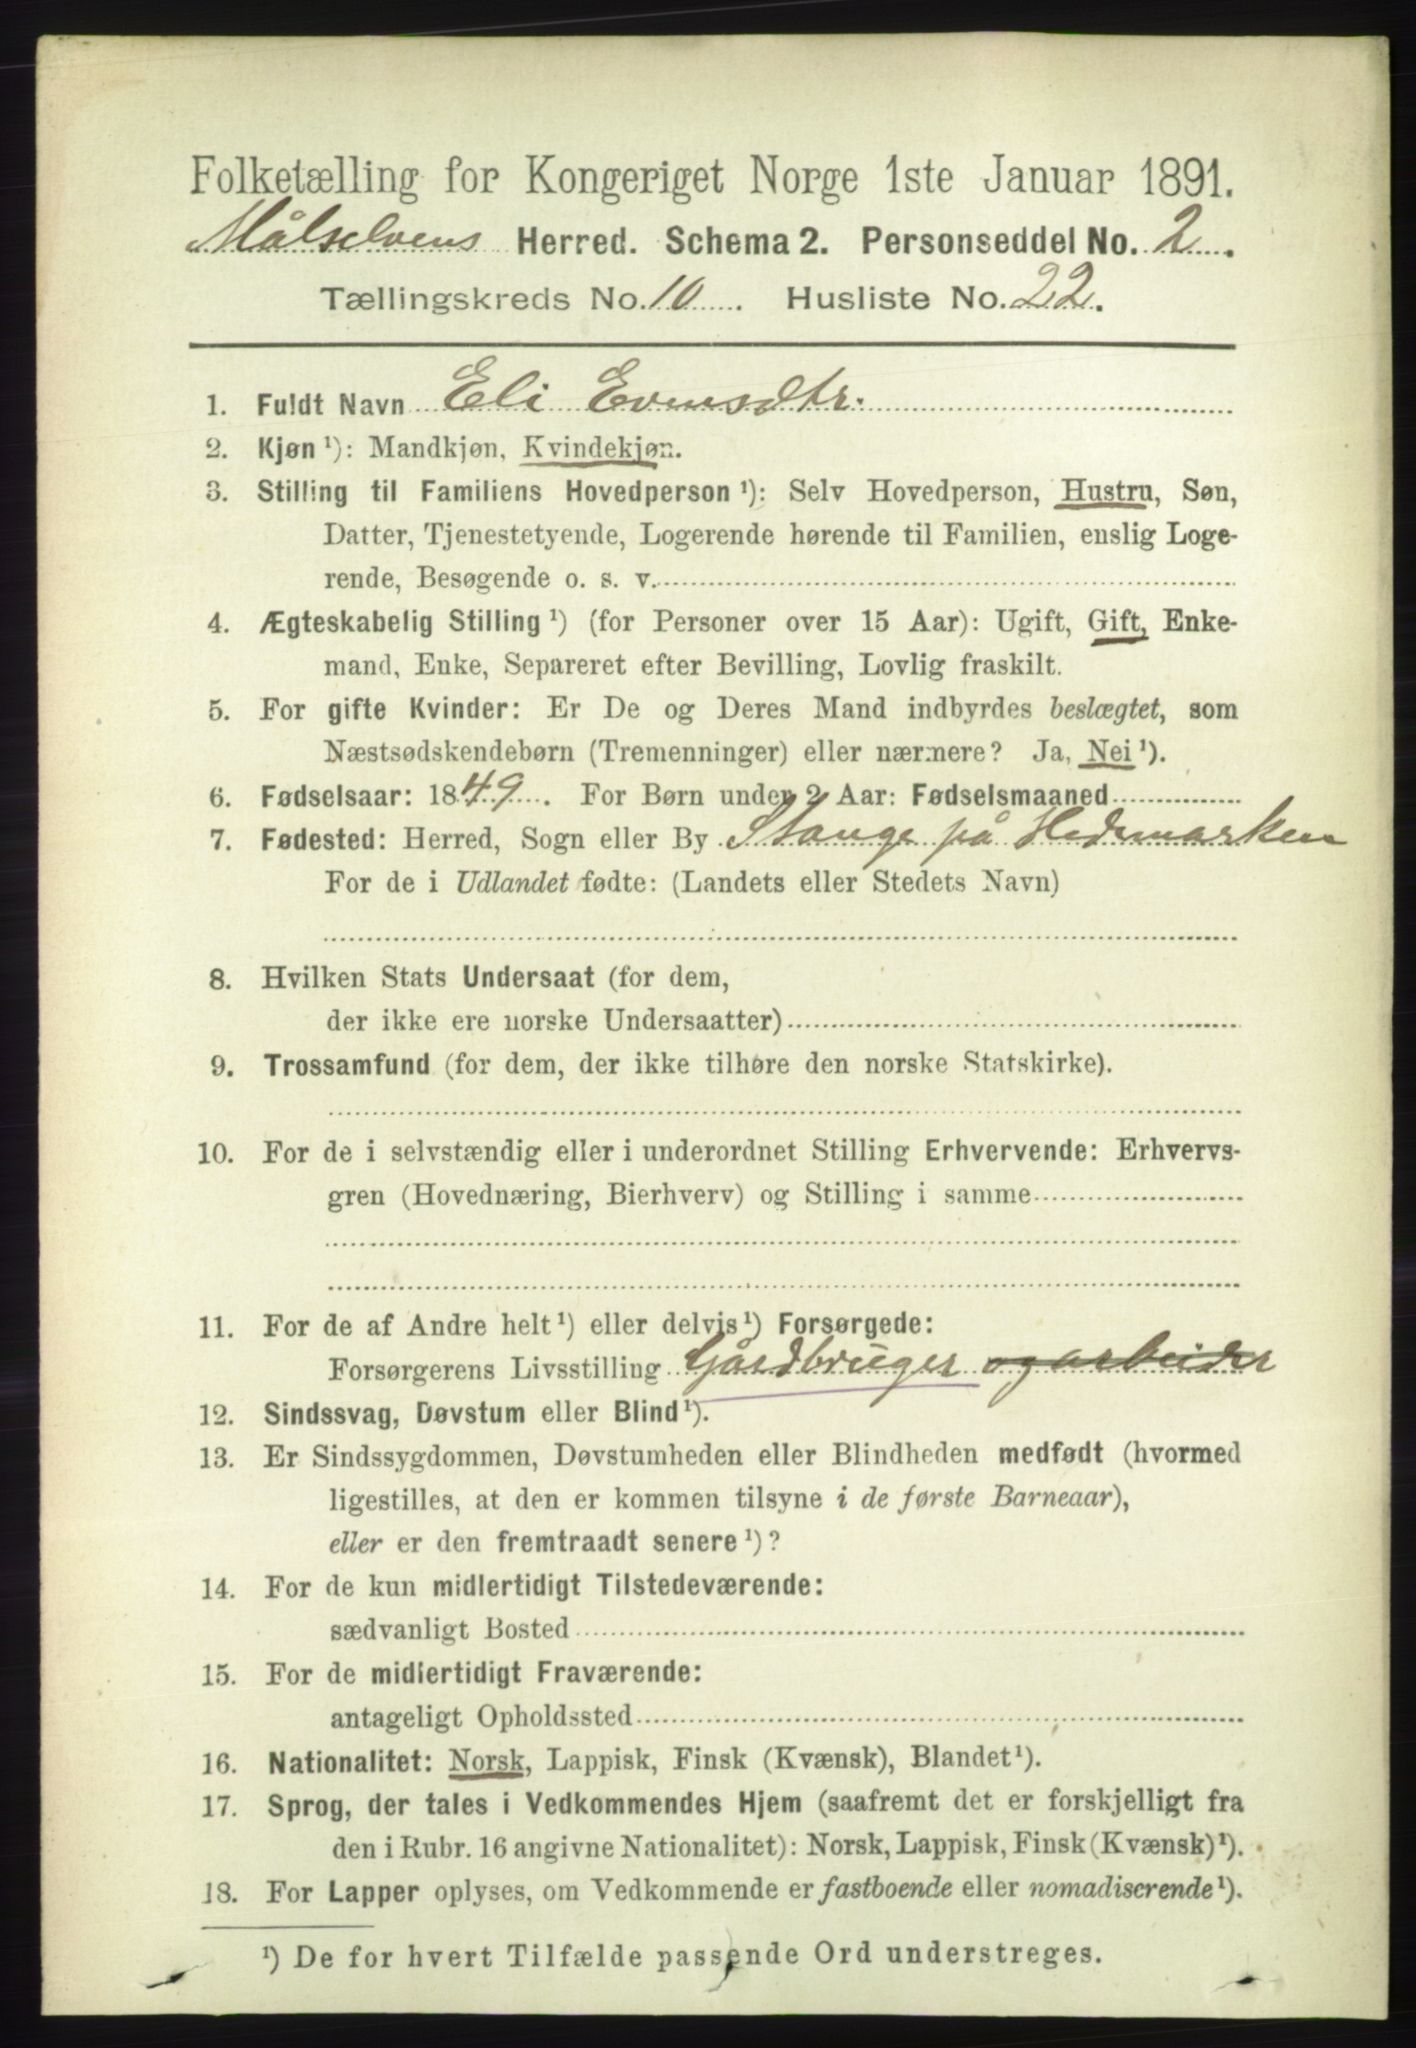 Folketælling for Kongeriget Norge 1ste Januar 1891.
Målselvens Herred. Schema 2. Personseddel No. 2.
Tællingskreds No. 10. Husliste No. 22.
1. Fuldt Navn Eli Evensdtr.
2. Kjøn ¹): Mandkjøn, Kvindekjøn.
3. Stilling til Familiens Hovedperson ¹): Selv Hovedperson, Hustru, Søn,
Datter, Tjenestetyende, Logerende hørende til Familien, enslig Loge-
rende, Besøgende o. s. v.
4. Ægteskabelig Stilling ¹) (for Personer over 15 Aar): Ugift, Gift, Enke-
mand, Enke, Separeret efter Bevilling, Lovlig fraskilt.
5. For gifte Kvinder: Er De og Deres Mand indbyrdes beslægtet, som
Næstsødskendebørn (Tremenninger) eller nærmere? Ja, Nei ¹).
6. Fødselsaar: 1849. For Børn under 2 Aar: Fødselsmaaned
7. Fødested: Herred, Sogn eller By Stange på Hedemarken
For de i Udlandet fødte: (Landets eller Stedets Navn)
8. Hvilken Stats Undersaat (for dem,
der ikke ere norske Undersaatter)
9. Trossamfund (for dem, der ikke tilhøre den norske Statskirke).
10. For de i selvstændig eller i underordnet Stilling Erhvervende: Erhvervs-
gren (Hovednæring, Bierhverv) og Stilling i samme
11. For de af Andre helt ¹) eller delvis ¹) Forsørgede:
Forsørgerens Livsstilling Gårdbruger og arbeider
12. Sindssvag, Døvstum eller Blind ¹).
13. Er Sindssygdommen, Døvstumheden eller Blindheden medfødt (hvormed
ligestilles, at den er kommen tilsyne i de første Barneaar),
eller er den fremtraadt senere ¹)?
14. For de kun midlertidigt Tilstedeværende:
sædvanligt Bosted
15. For de midlertidigt Fraværende:
antageligt Opholdssted
16. Nationalitet: Norsk, Lappisk, Finsk (Kvænsk), Blandet ¹).
17. Sprog, der tales i Vedkommendes Hjem (saafremt det er forskjelligt fra
den i Rubr. 16 angivne Nationalitet): Norsk, Lappisk, Finsk (Kvænsk) ¹).
18. For Lapper oplyses, om Vedkommende er fastboende eller nomadiserende ¹).
¹) De for hvert Tilfælde passende Ord understreges.